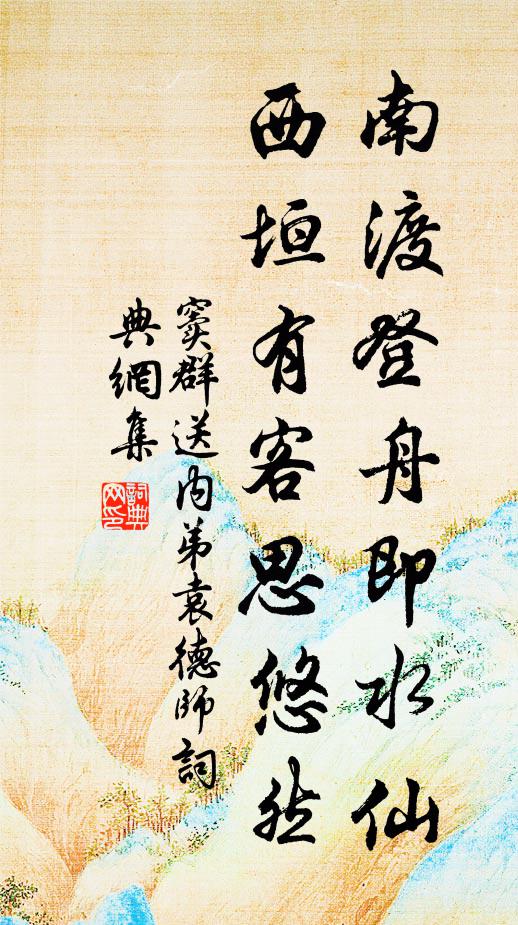 南渡登舟即水仙
西垣有客思悠然
窦群送内弟袁德师詞
典網集
詞典網印